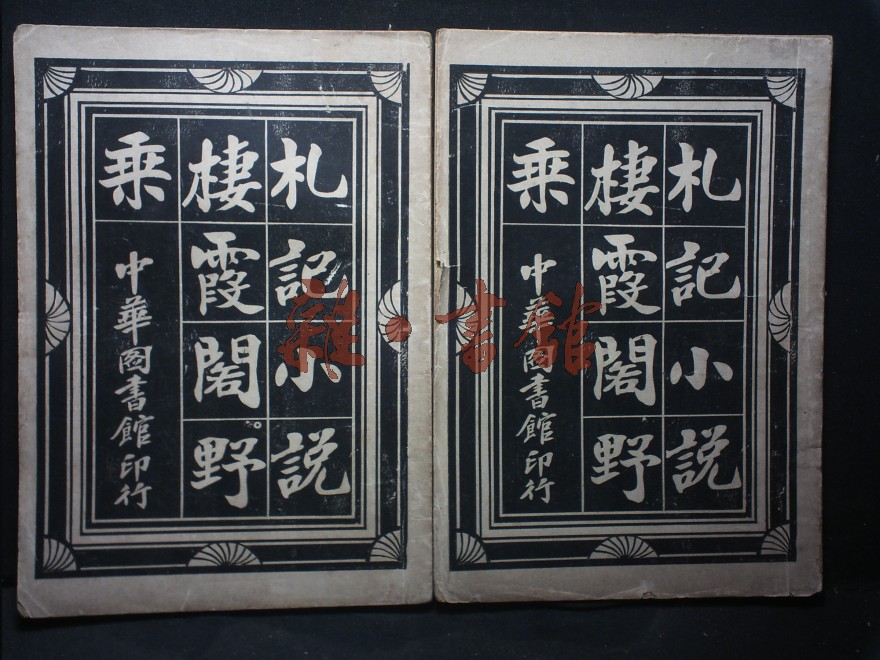 札記小説
棲霞閣野
乘
中華圖書館印行
札記小説
棲霞閣野
乘
中華圖書館印行
雜·書館